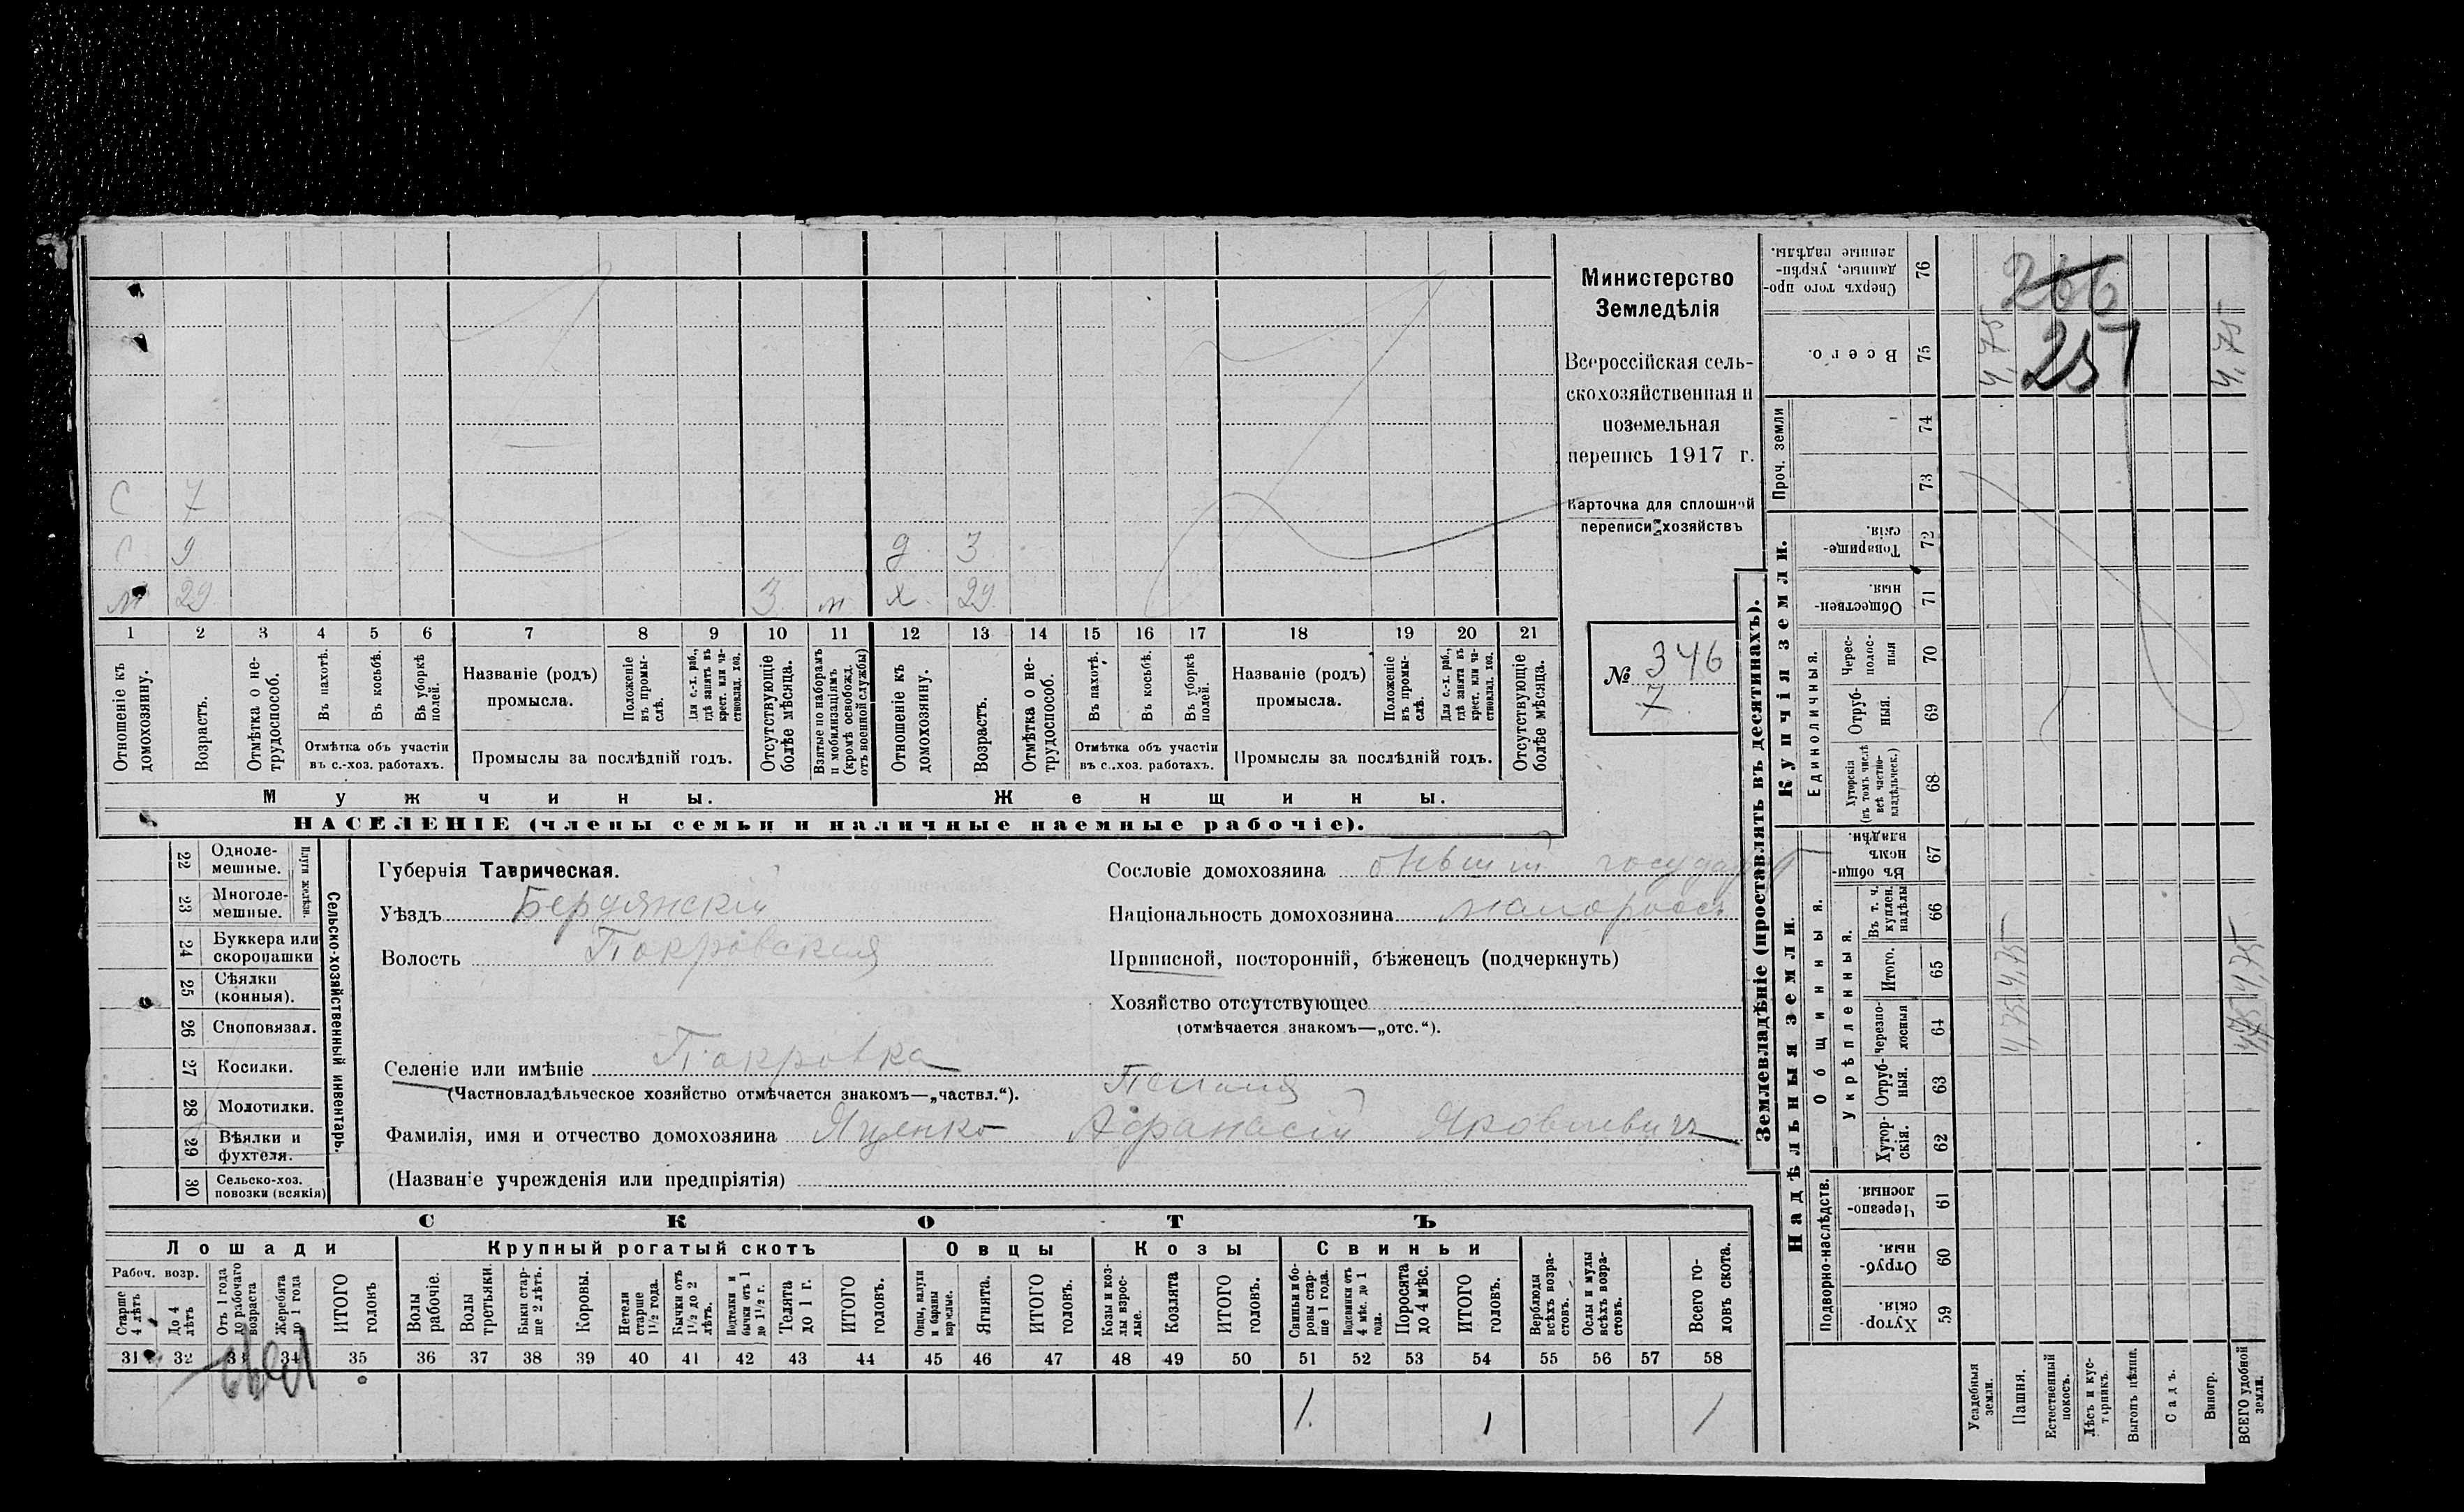 Министерство
Земледѣлія
Всероссійская сель-
скохозяйственная и
поземельная
перепись 1917 г.
Карточка для сплошной
переписи хозяйствъ
№ 346
7
С 7
С 9 д 3
м 29 3 м х 29
1 2 3 4 5 6 7 8 9 10 11 12 13 14 15 16 17 18 19 20 21
Отношеніе къ домохозяину.
Возрастъ.
Отмѣтка о не-трудоспособ.
Въ пахотѣ.
Въ косьбѣ.
Въ уборкѣ полей.
Отмѣтка объ участіи въ с.-хоз. работахъ.
Названіе (родъ) промысла.
Положеніе въ промы-слѣ.
Для с.-х. раб., гдѣ занятъ въ крест. или ча-стновлад. хоз.
Промыслы за послѣдній годъ.
Отсутствующіе болѣе мѣсяца.
Взятые по наборамъ и мобилизаціямъ (кромѣ освобожд. отъ военной службы)
Отношеніе къ домохозяину.
Возрастъ.
Отмѣтка о не-трудоспособ.
Въ пахотѣ.
Въ косьбѣ.
Въ уборкѣ полей.
Отмѣтка объ участіи въ с.-хоз. работахъ.
Названіе (родъ) промысла.
Положеніе въ промы-слѣ.
Для с.-х. раб., гдѣ занята въ крест. или ча-стновлад. хоз.
Промыслы за послѣдній годъ.
Отсутствующіе болѣе мѣсяца.
Мужчины. Женщины.
НАСЕЛЕНІЕ (члены семьи и наличные наемные рабочіе).
Сельско-хозяйственный инвентарь.
Плуги желѣзн.
22 Одноле-мешные.
23 Многоле-мешные.
24 Буккера или скоропашки
25 Сѣялки (конныя).
26 Сноповязал.
27 Косилки.
28 Молотилки.
29 Вѣялки и фухтеля.
30 Сельско-хоз. повозки (всякія)
Губернія Таврическая.
Уѣздъ Бердянскій
Волость Покровская
Селеніе или имѣніе Покровка
(Частновладѣльческое хозяйство отмѣчается знакомъ—„частвл.“).
Фамилія, имя и отчество домохозяина Яценко Афанасій Яковлевичъ
(Названіе учрежденія или предпріятія)
Сословіе домохозяина бывшій государ
Національность домохозяина малороссъ
Приписной, посторонній, бѣженецъ (подчеркнуть)
Хозяйство отсутствующее
(отмѣчается знакомъ—„отс.“).
СКОТЪ
Лошади Крупный рогатый скотъ Овцы Козы Свиньи
Рабоч. возр.
Старше 4 лѣтъ
До 4 лѣтъ
Отъ 1 года до рабочаго возраста
Жеребята до 1 года
ИТОГО головъ
Волы рабочіе.
Волы третьяки.
Быки стар-ше 2 лѣтъ.
Коровы.
Нетели старше 1½ года.
Бычки отъ 1½ до 2 лѣтъ.
Подтелки и бычки отъ 1 до 1½ г.
Телята до 1 г.
ИТОГО головъ.
Овцы, валухи и бараны взрослые.
Ягнята.
ИТОГО головъ.
Козы и коз-лы взрос-лые.
Козлята
ИТОГО головъ.
Свиньи и бо-ровы стар-ше 1 года.
Подсвинки отъ 4 мѣс. до 1 года.
Поросята до 4 мѣс.
ИТОГО головъ.
Верблюды всѣхъ возра-стовъ.
Ослы и мулы всѣхъ возра-стовъ.
Всего го-ловъ скота.
31 32 33 34 35 36 37 38 39 40 41 42 43 44 45 46 47 48 49 50 51 52 53 54 55 56 57 58
1 1 1
Землевладѣніе (проставлять въ десятинахъ).
Надѣльныя земли. Купчія земли. Проч. земли
Подворно-наслѣдств.
Общинныя.
Укрѣпленныя.
Единоличныя.
59 Хутор-скія.
60 Отруб-ныя.
61 Черезпо-лосныя.
62 Хутор-скія.
63 Отруб-ныя.
64 Черезпо-лосныя
65 Итого.
66 Въ т. ч. куплен. надѣлы
67 Въ общи-номъ владѣн.
68 Хуторскія (въ томъ числѣ всѣ частно-владѣльческ.)
69 Отруб-ныя.
70 Черес-полос-ныя
71 Обществен-ныя.
72 Товарище-скія.
73
74
75 Всего.
76 Сверхъ того про-данные, укрѣп-ленные надѣлы.
Усадебныя земли.
Пашня.
Естественный покосъ.
Лѣсъ и кус-тарникъ.
Выгонъ цѣлин.
Садъ.
Виногр.
ВСЕГО удобной земли.
4,75 4,75
4,75 4,75
4,75
4,75
266
257